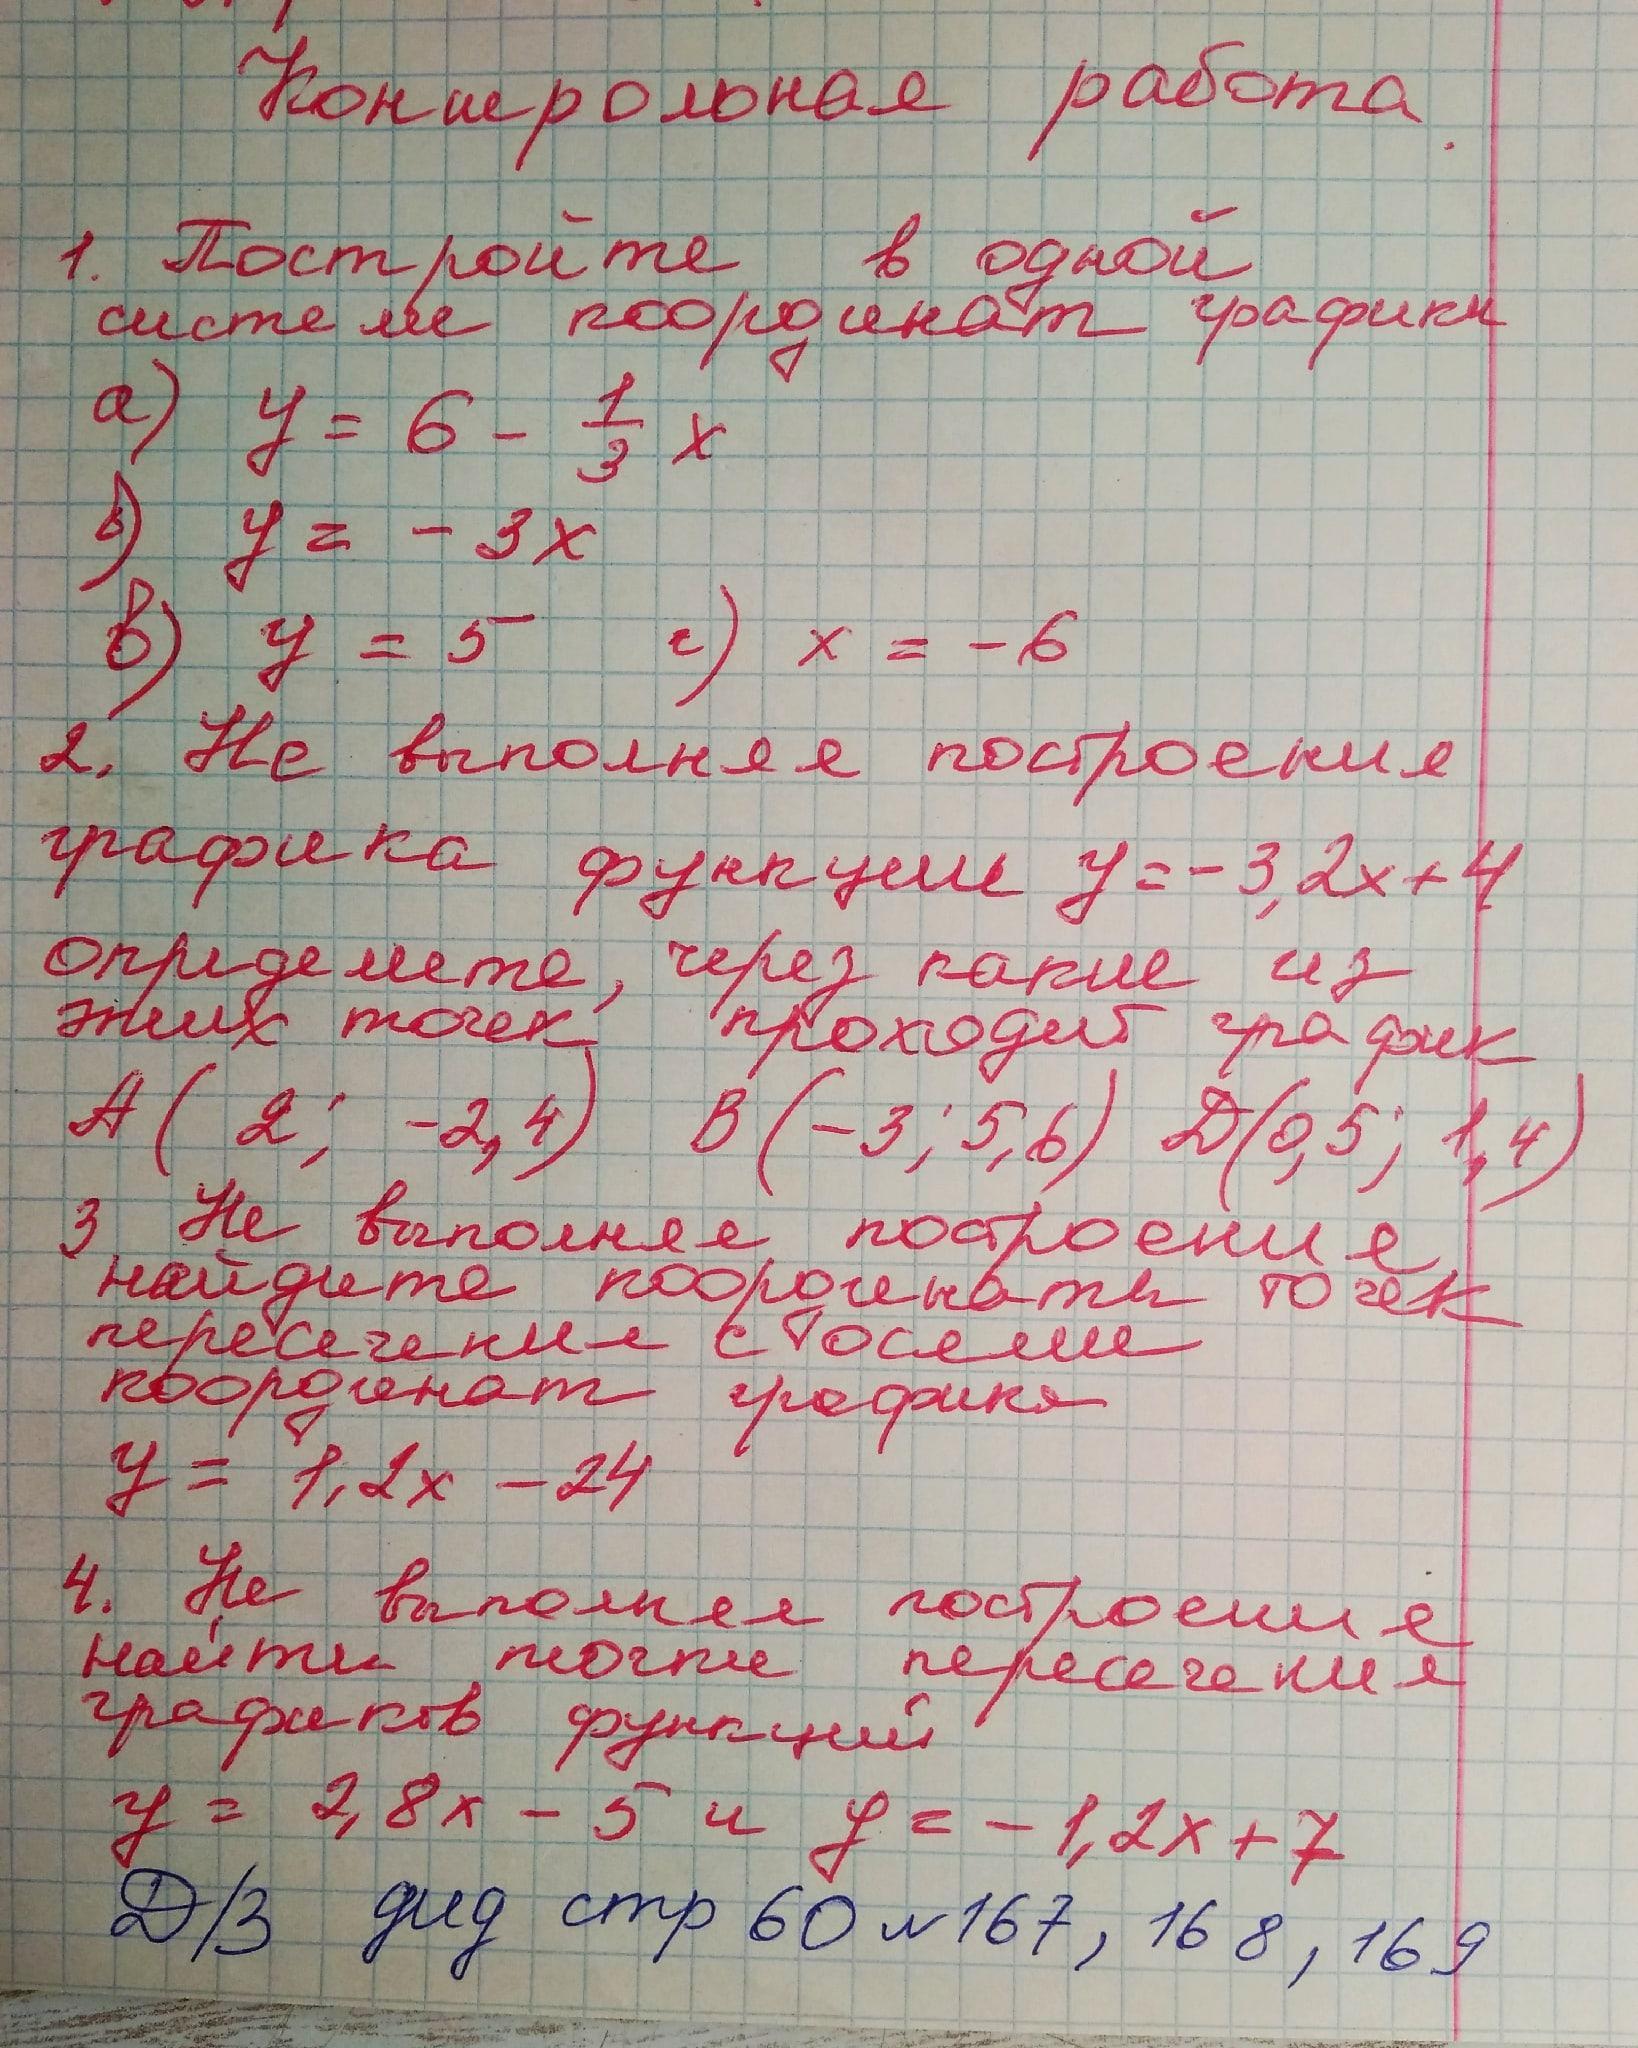 Контрольная работа.
1. Постройте в одной
системе координат графики
а) y = 6 - 1/3 x
б) y = - 3x
в) y = 5 г) x = -6
2. Не выполняя построения
графика функции y=-3,2x+4
определите, через какие из
этих точек проходит график
A( 2; -2,4) B(-3; 5,6) D(0,5; 1,4)
3. Не выполняя построения,
найдите координаты точек
пересечения с осями
координат графика
y = 1,2x - 24
4. Не выполняя построения
найти точки пересечения
графиков функций
y = 2,8x - 5 и y = -1,2x+7
Д/З дид стр 60 №167, 168, 169